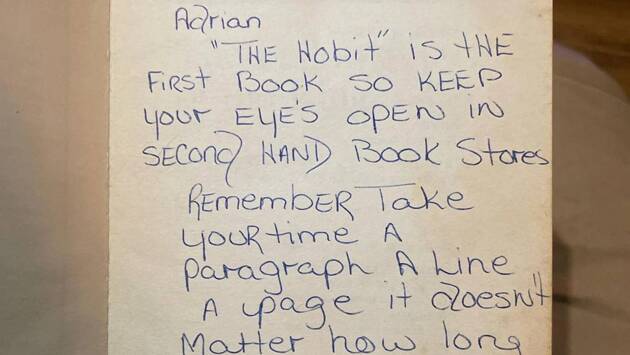 Adrian
"THE Hobit" is tHE
FiRSt Book SO KEEP
your EyE'S OPEN iN
SECOND HAND Book Stores
REmembER Take
youR time A
paragraph A Line
A page it doesn't
Matter how long